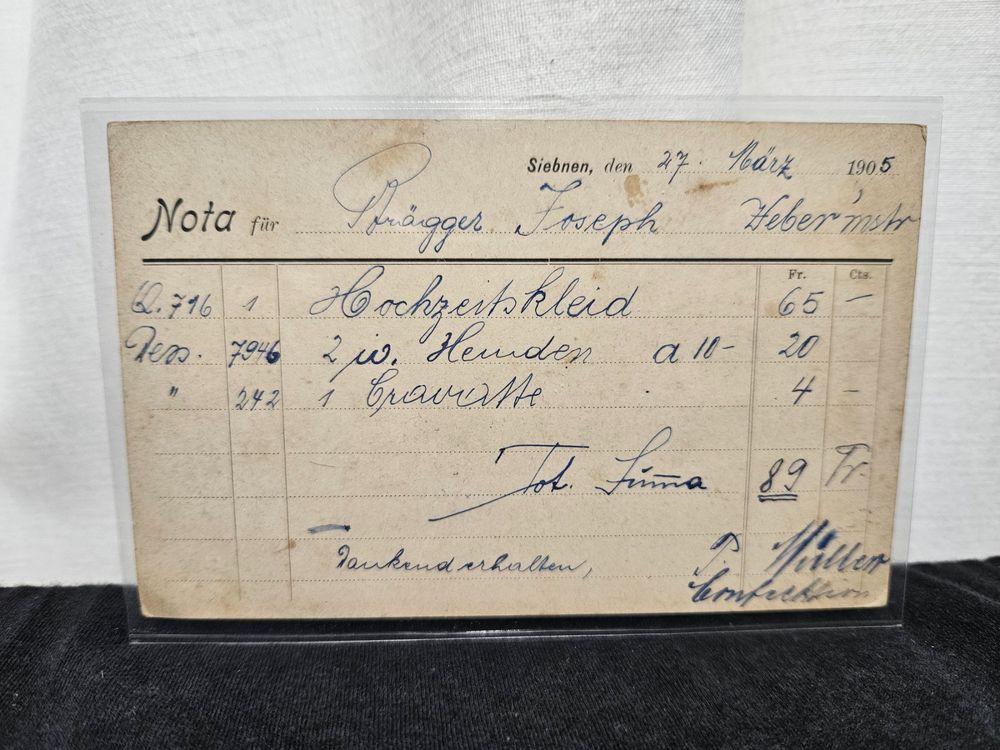 Siebnen, den 27. März 1905
Nota für Brägger Joseph Webermstr
Fr. Cts.
Q. 716 1 Hochzeitskleid 65 –
Dess. 7946 2 w. Hemden a 10– 20
" 242 1 Cravatte 4 –
Tot. Suma 89 Fr.
Dankend erhalten, P. Müller
Confektion